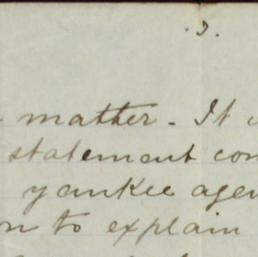 .3.
matther - It
statement con
yankee agen
on to explain